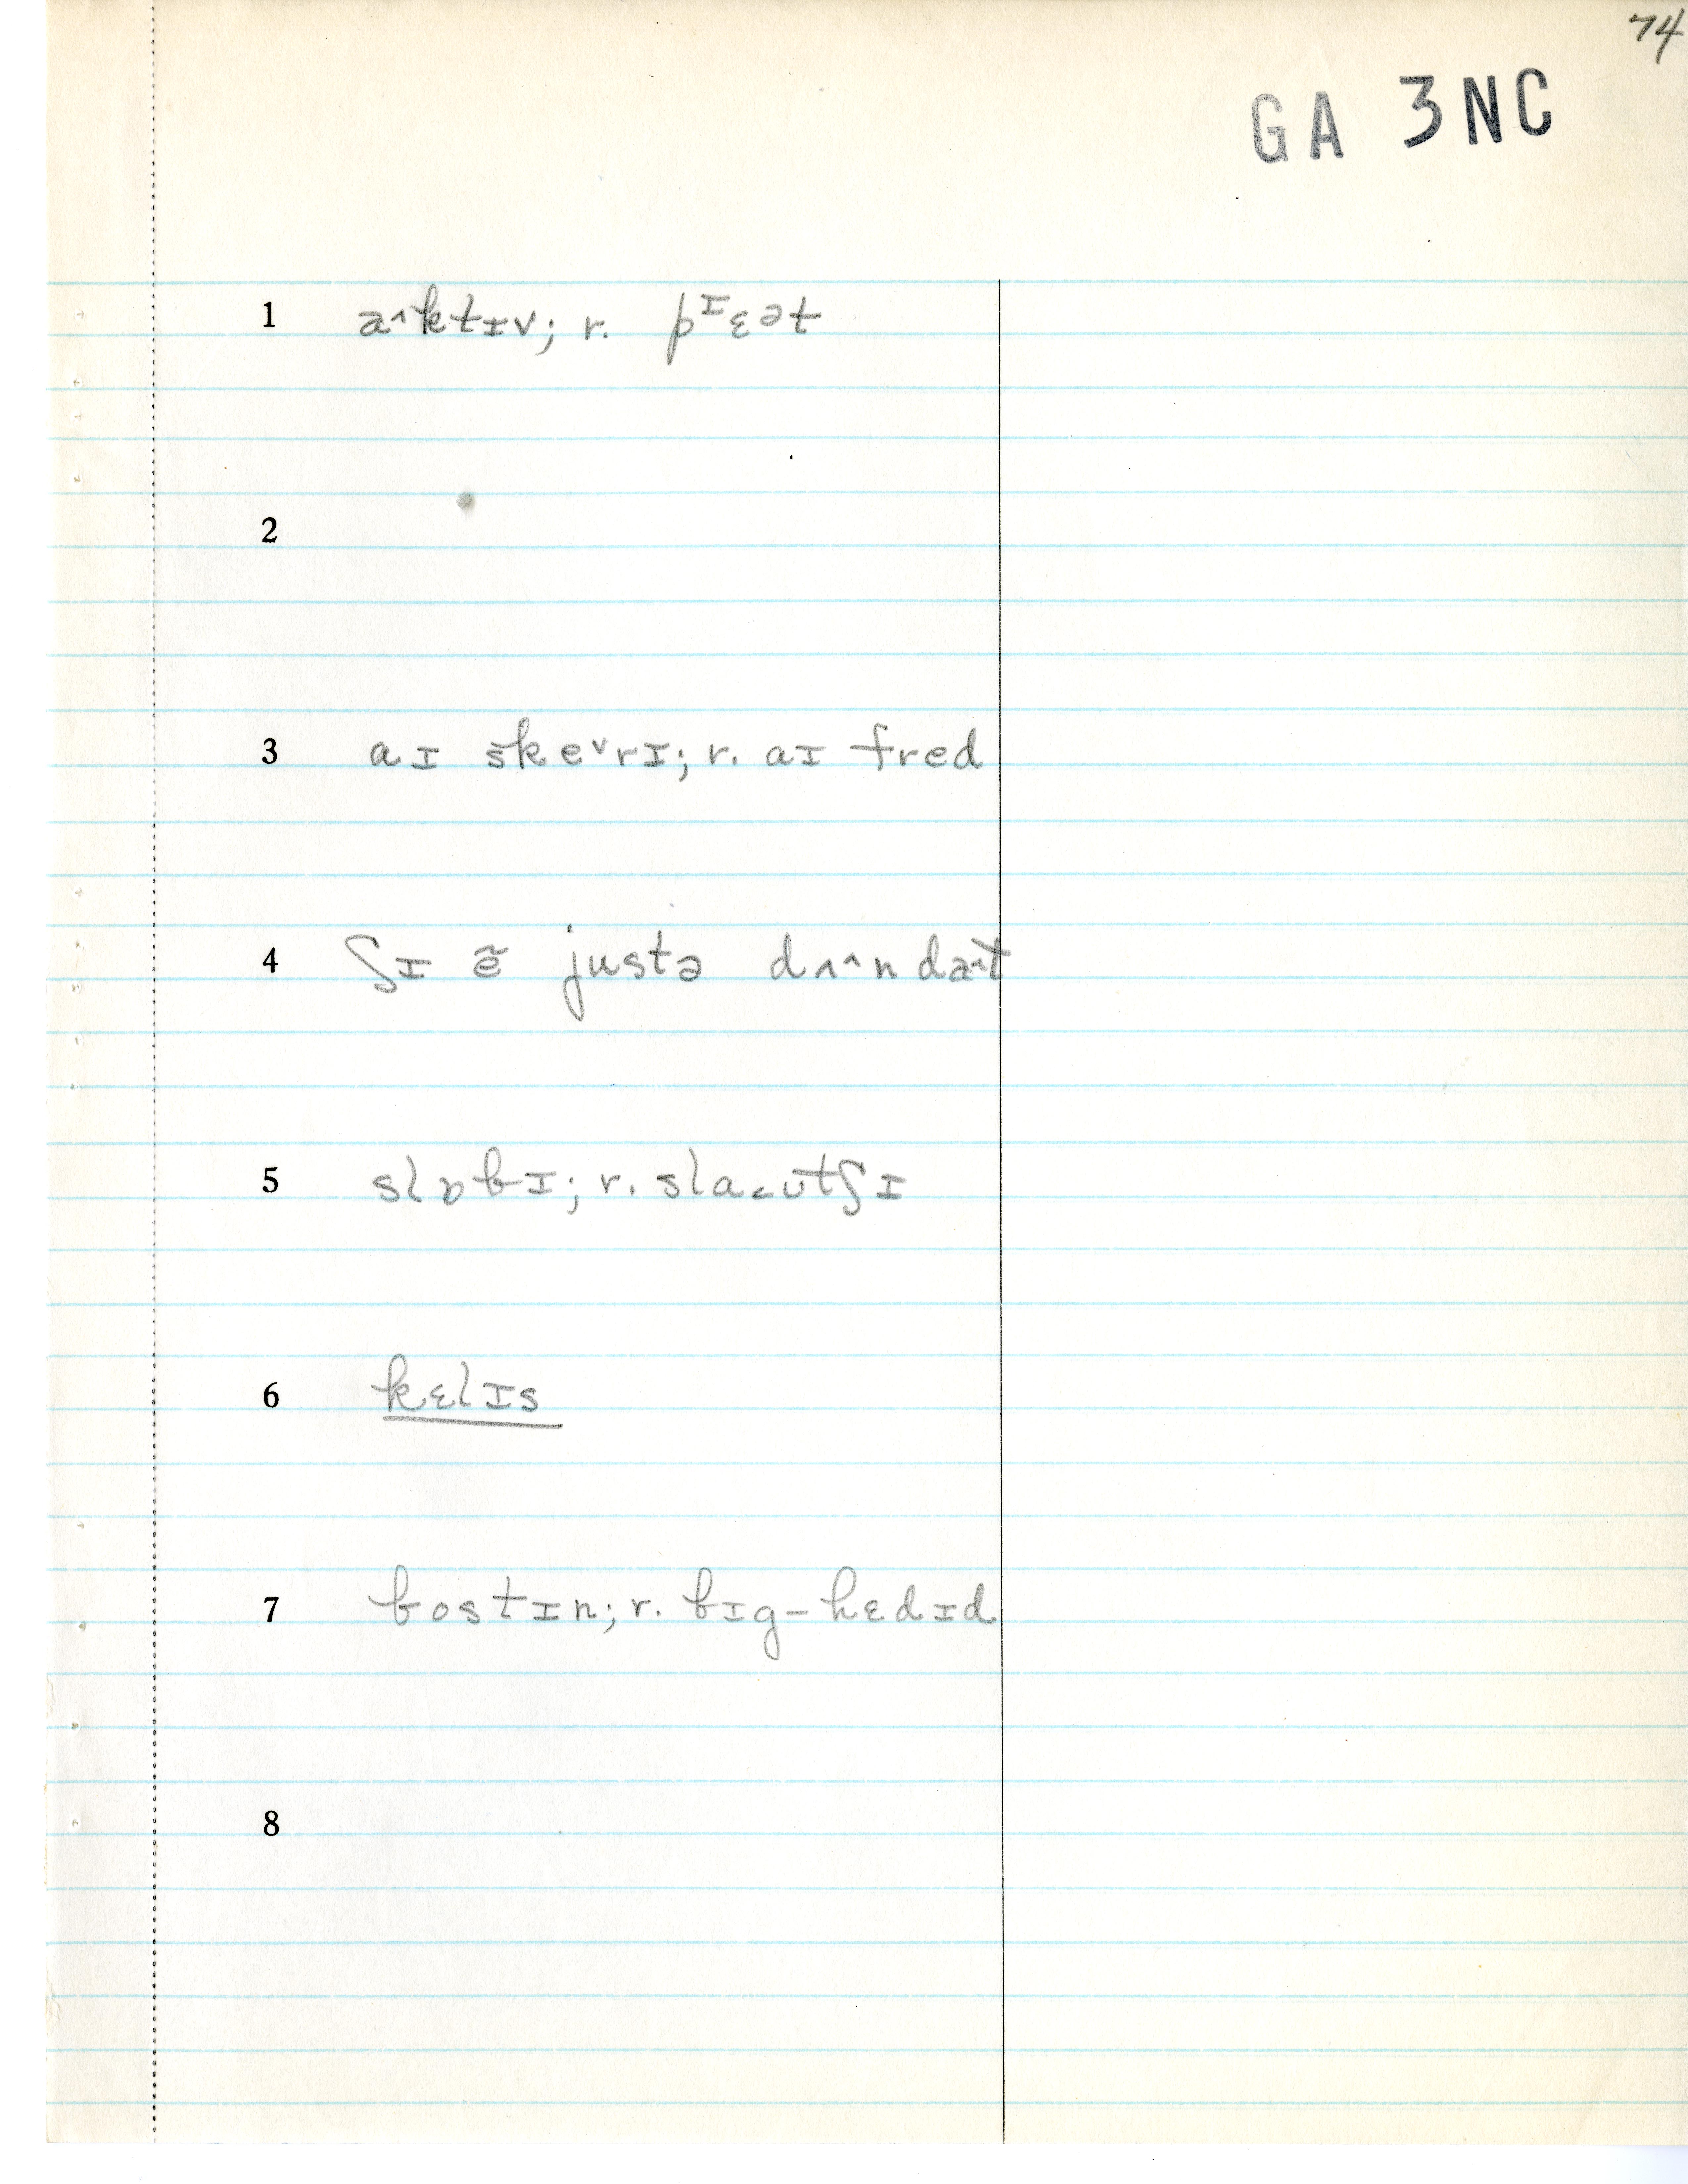 74
GA 3NC
1 a˄ktɪv; r. pᶦɛət
2
3 aɪ ske˅rɪ; r. aɪ fred
4 ʃɪ ẽ justə dʌ˄n da˄t
5 slɒbɪ; r. sla˂ʊtʃɪ
6 kɛlɪs
7 bostɪn; r. bɪg-hɛdɪd
8